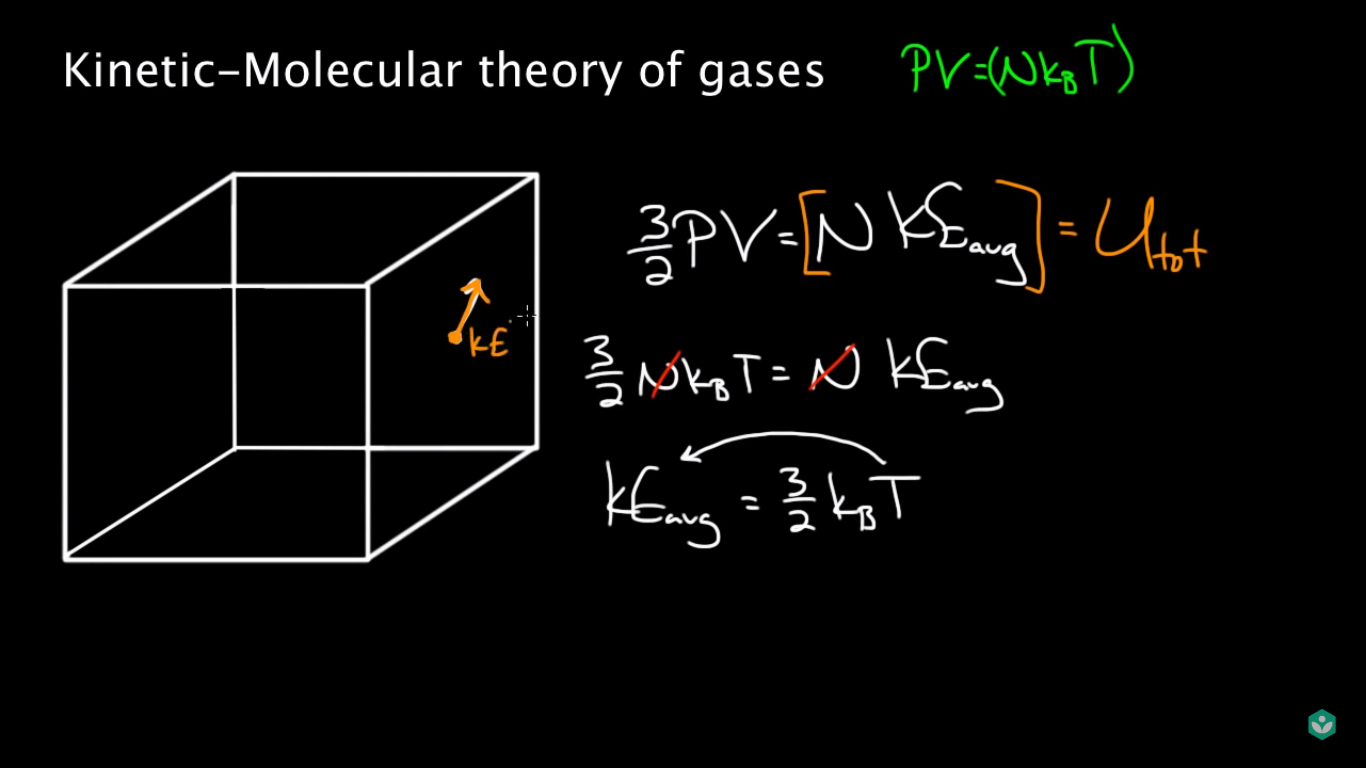 Kinetic–Molecular theory of gases PV=(Nk_BT)
3/2 PV = [N KE_avg] = U_tot
KE
3/2 Nk_BT = N KE_avg
KE_avg = 3/2 k_BT